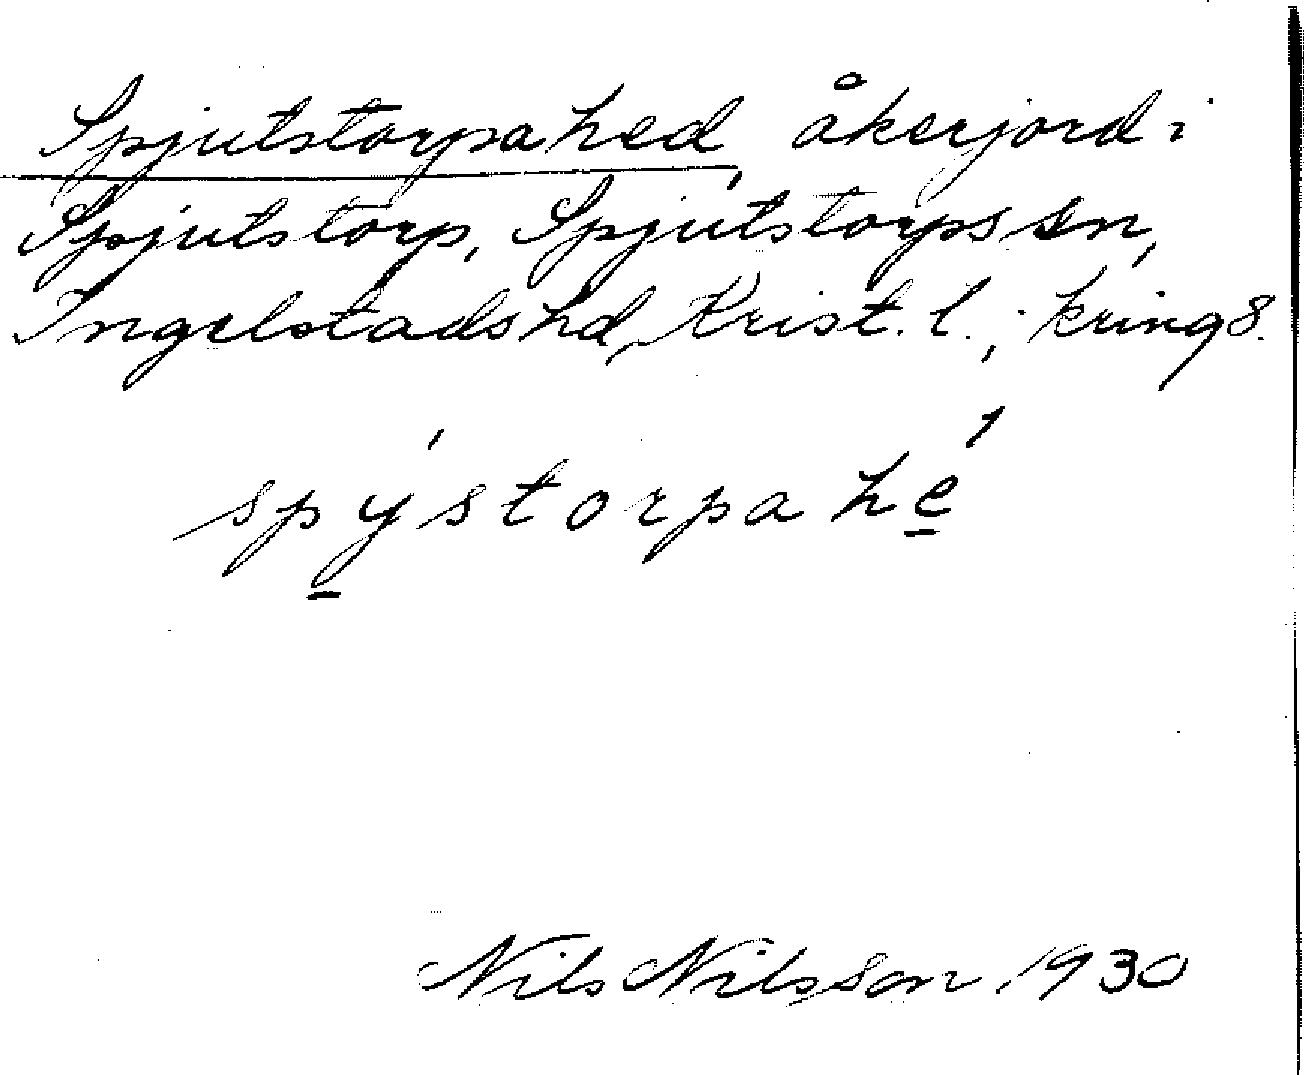 Spjutstorpahed, åkerjord i
Spjutstorp, Spjutstorps sn,
Ingelstads hd, Krist. l.; kring 8.
spýstorpahé
Nils Nilsson 1930